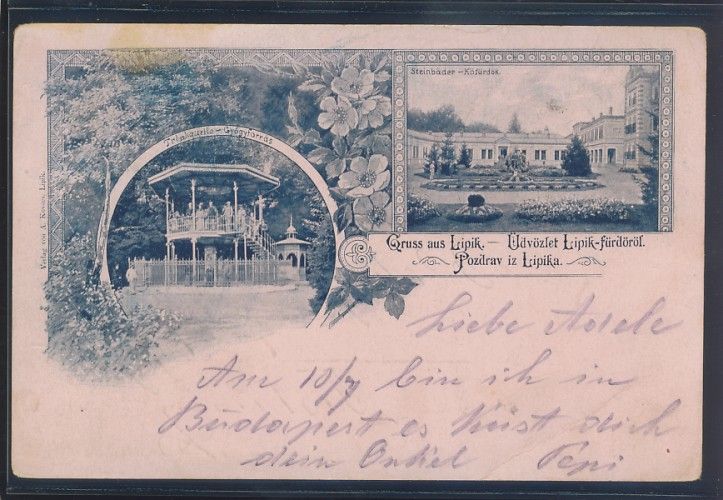 Steinbäder – Kőfürdők.
Trinkquelle – Gyógyforrás
Verlag von A. Kovács, Lipik.
Gruss aus Lipik. — Üdvözlet Lipik-fürdőről.
Pozdrav iz Lipika.
Liebe Adele
Am 10/7 bin ich in
Budapest es küsst dich
dein Onkel Pepi